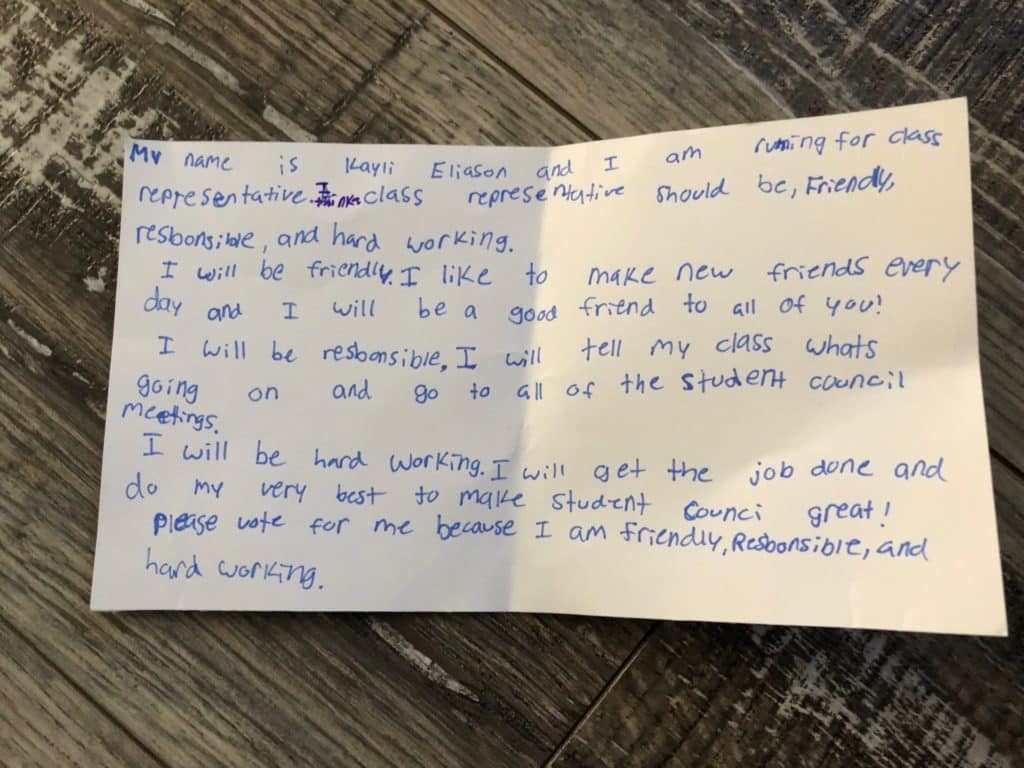 My name is Kayli Eliason and I am runing for class
representative. I think class representative should be, Friendly,
resbonsible, and hard working.
I will be friendly. I like to make new friends every
day and I will be a good friend to all of you!
I will be resbonsible, I will tell my class whats
going on and go to all of the student council
meetings.
I will be hard working. I will get the job done and
do my very best to make student Counci great!
please vote for me because I am friendly, Resbonsible, and
hard working.